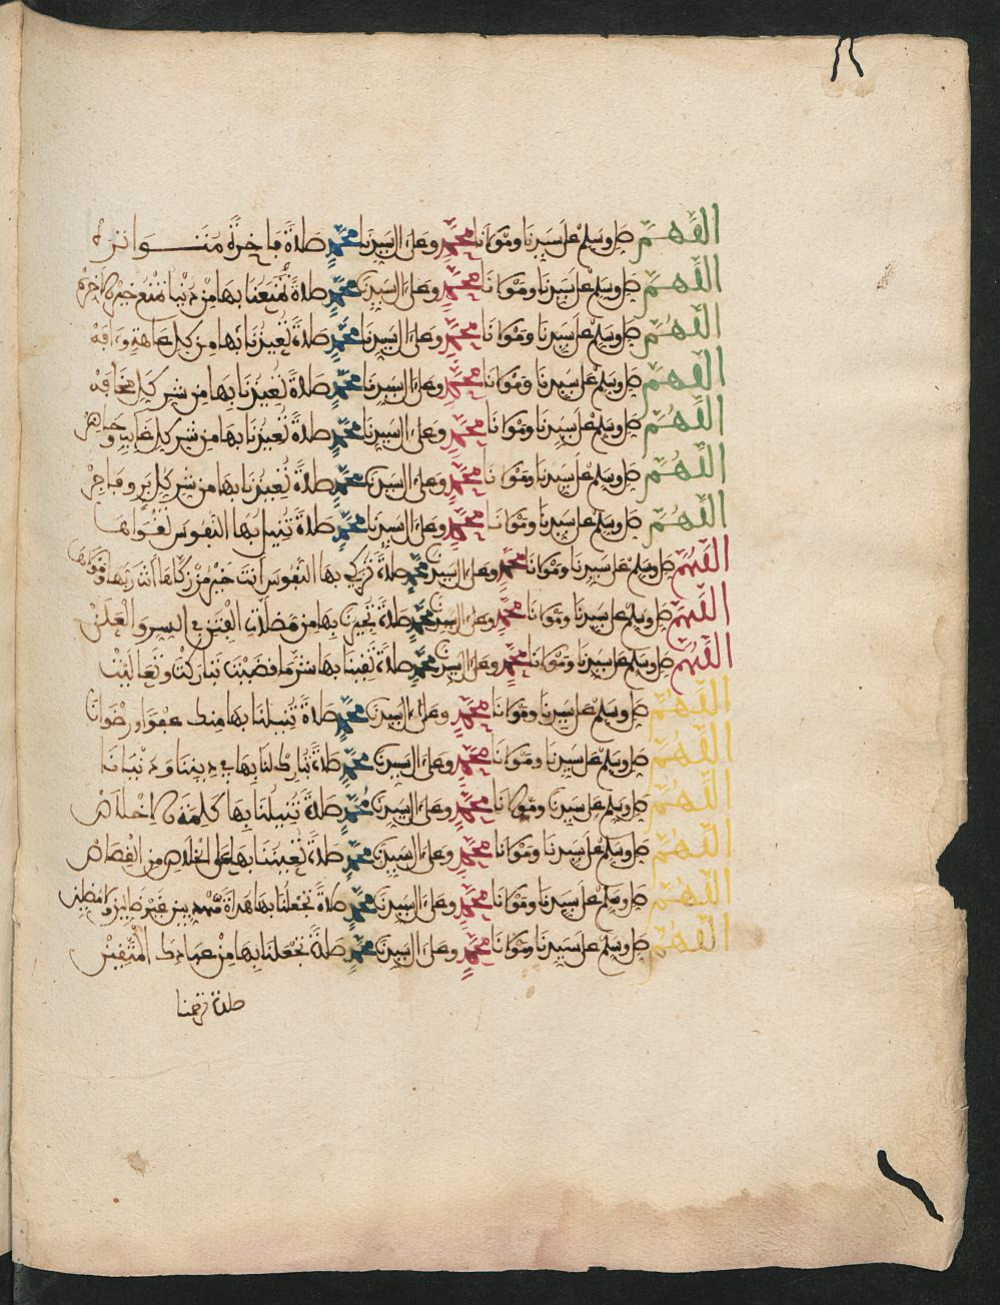 اللهم صل وسلم على سيدنا ومولانا محمد وعلى ءال سيدنا محمد صلاة فاخرة متواترة
اللهم صل وسلم على سيدنا ومولانا محمد وعلى ءال سيدنا محمد صلاة تمتعنا بها من دنيا
اللهم صل وسلم على سيدنا ومولانا محمد وعلى ءال سيدنا محمد صلاة تعيذنا بها من كل عاهة وءافة
اللهم صل وسلم على سيدنا ومولانا محمد وعلى ءال سيدنا محمد صلاة تعيذنا بها من شر كل مخافة
اللهم صل وسلم على سيدنا ومولانا محمد وعلى ءال سيدنا محمد صلاة تعيذنا بها من شر كل غايب وحاضر
اللهم صل وسلم على سيدنا ومولانا محمد وعلى ءال سيدنا محمد صلاة تعيذنا بها من شر كل بر وفاجر
اللهم صل وسلم على سيدنا ومولانا محمد وعلى ءال سيدنا محمد صلاة تنيل بها النفوس تقواها
اللهم صل وسلم على سيدنا ومولانا محمد وعلى ءال سيدنا محمد صلاة تزكي بها النفوس أنت خير من زكاها أنت ربها ومولاها
اللهم صل وسلم على سيدنا ومولانا محمد وعلى ءال سيدنا محمد صلاة تجيرنا بها من مضلات الفتن في السر والعلن
اللهم صل وسلم على سيدنا ومولانا محمد وعلى ءال سيدنا محمد صلاة تقينا بها شر ما قضيت تباركت وتعاليت
اللهم صل وسلم على سيدنا ومولانا محمد وعلى ءال سيدنا محمد صلاة تنيلنا بها منك عفوا ورضوانا
اللهم صل وسلم على سيدنا ومولانا محمد وعلى ءال سيدنا محمد صلاة تبارك لنا بها في ديننا ودنيانا
اللهم صل وسلم على سيدنا ومولانا محمد وعلى ءال سيدنا محمد صلاة تنيلنا بها كلمة الاخلاص
اللهم صل وسلم على سيدنا ومولانا محمد وعلى ءال سيدنا محمد صلاة تعيننا بها على الخلاص من القصاص
اللهم صل وسلم على سيدنا ومولانا محمد وعلى ءال سيدنا محمد صلاة تجعلنا بها هداة مهديين غير ضالين ولا مضلين
اللهم صل وسلم على سيدنا ومولانا محمد وعلى ءال سيدنا محمد صلاة تجعلنا بها من عبادك المتقين
صلاة ترحمنا